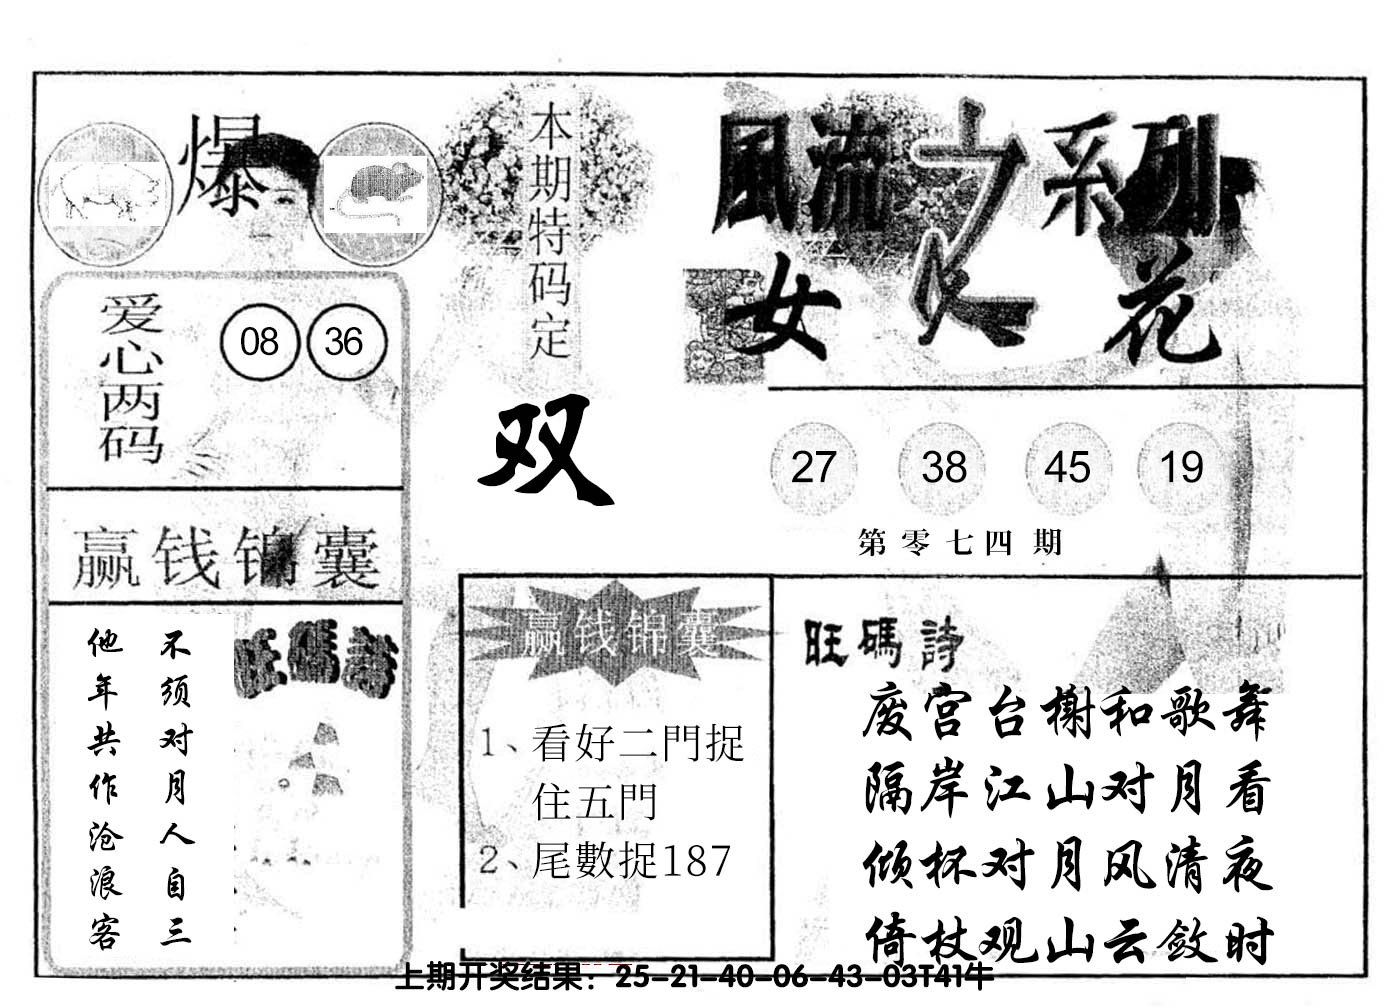 爆
本期特码定
双
風流之系列
女人花
爱心两码
08 36
27 38 45 19
第零七四期
赢钱锦囊
不须对月人自三
他年共作沧浪客
旺碼詩
赢钱锦囊
1、看好二門捉
住五門
2、尾數捉187
旺碼詩
废宫台榭和歌舞
隔岸江山对月看
倾杯对月风清夜
倚杖观山云敛时
上期开奖结果：25-21-40-06-43-03T41牛